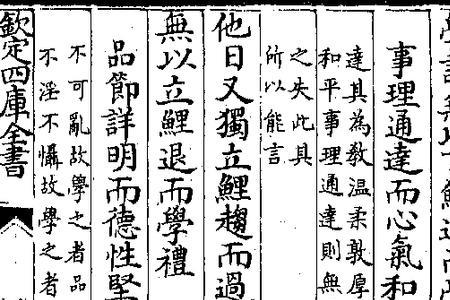 學詩無以言鯉退而學
事理通達而心氣和
達其為教溫柔敦厚
和平事理通達則無
之失此其
所以能言
他日又獨立鯉趨而過
無以立鯉退而學禮
品節詳明而德性堅
不可亂故學之者品
不淫不懾故學之者
欽定四庫全書